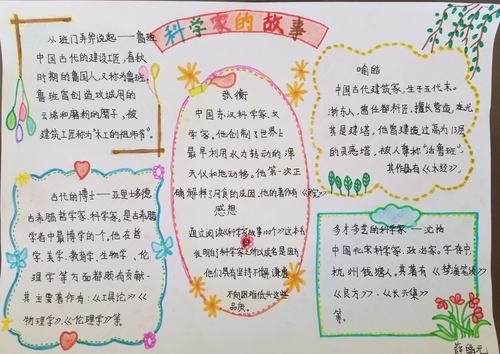 科学家的故事
从班门弄斧说起——鲁班
中国古代的建设工匠,春秋
时期的鲁国人又称为鲁班,
鲁班曾创造攻城用的
云梯和磨粉的磨子,被
建筑工匠称为"木工的祖师爷"。
张衡
中国东汉科学家、文
学家,他创制了世界上
最早利用水力转动的浑
天仪和地动移。他第一次正
确解释了月食的成因,他的著作有《
感想
通过阅读《科学家故事100个》这本书
我明白了科学家之所以成名是因为
他们具有坚持不懈、
不向困难低头这些
品质。
喻皓
中国古代建筑家,生于五代末。
浙东人,曾任都料匠,擅长营造,尤
其是建塔,他曾建造过高为13层
的灵感塔,被人尊称"活鲁班",
其作品有《木经》。
古代的博士——亚里士多德
古希腊哲学家、科学家,是古希腊
学者中最博学的一个,他在哲
学、美学、教育学、生物学、伦
理学等方面都颇有贡献,
其主要著作有:《工具论》《
物理学》、《伦理学》等
多才多艺的科学家——沈括
中国北宋科学家、政治家,字存中
杭州钱塘人,其著有《梦溪笔谈》
《良方》、《长兴集》
等。